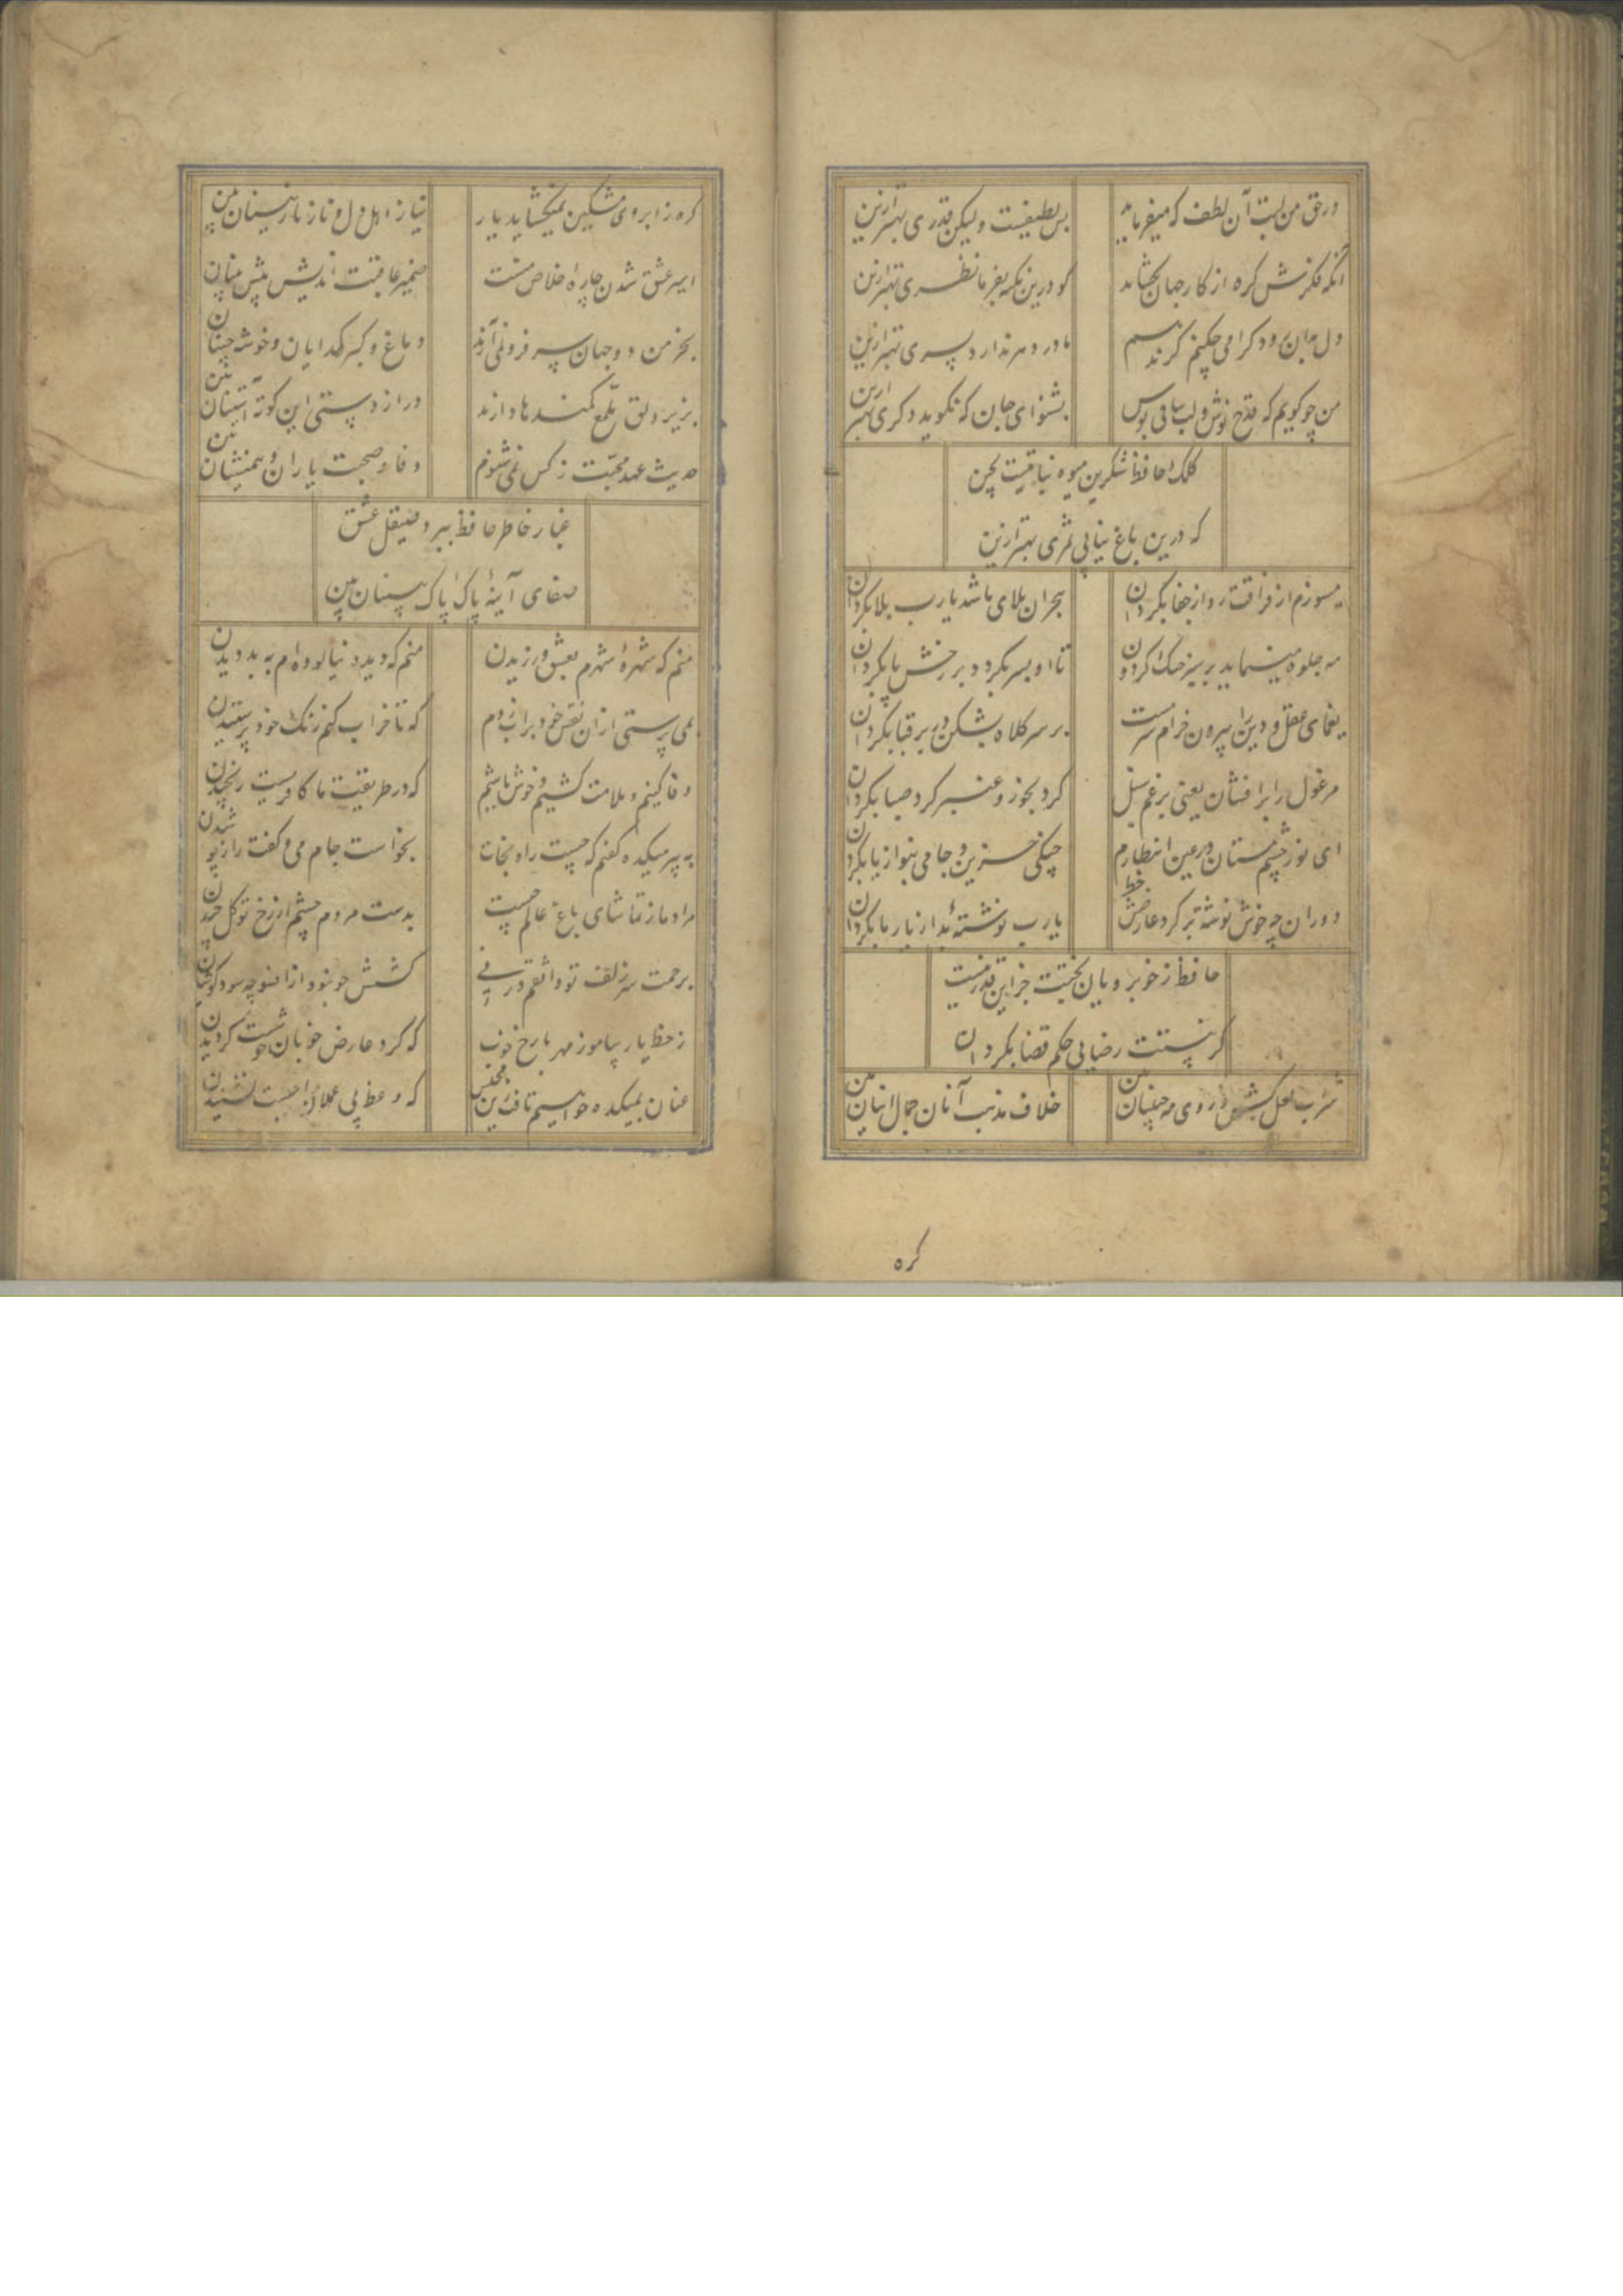 در حق من لبت آن لطف که میفرماید
بس لطیفست ولیکن قدری بهتر ازین
آنکه فکرش گره از کار جهان بگشاید
گو درین نکته بفرما نظری بهتر ازین
دل بدان رود گرامی چکنم گر ندهم
مادر دهر ندارد پسری بهتر ازین
من چو گویم که قدح نوش و لب ساقی بوس
بشنو ای جان که نگوید دگری بهتر ازین
کلک حافظ شکرین میوه نباتیست بچین
که درین باغ نیابی ثمری بهتر ازین
میسوزم از فراقت رو از جفا بگردان
هجران بلای ما شد یارب بلا بگردان
مه جلوه مینماید بر سبز خنک گردون
تا او بسر بگردد بر رخش پا بگردان
یغمای عقل و دین را بیرون خرام سرمست
بر سر کلاه بشکن در بر قبا بگردان
مرغول را برافشان یعنی برغم سنبل
گرد بخور و عنبر گرد صبا بگردان
ای نور چشم مستان در عین انتظارم
چنگی حزین و جامی بنواز یا بگردان
دوران چو خوش نوشته بر گرد عارضش خط
یارب نوشتهٔ بد از یار ما بگردان
حافظ ز خوبرویان بختت جز این قدر نیست
گر نیستت رضایی حکم قضا بگردان
شراب لعل کش و روی مه جبینان بین
خلاف مذهب آنان جمال اینان بین
گره
گره ز ابروی مشکین نمیگشاید یار
نیاز اهل دل و ناز نازنینان بین
اسیر عشق شدن چارهٔ خلاص منست
ضمیر عاقبت اندیش پیش بینان بین
بخرمن دو جهان سر فرو نمی آرند
دماغ و کبر گدایان و خوشه چینان بین
بزیر دلق ملمع کمندها دارند
دراز دستی این کوته آستینان بین
حدیث عهد محبت ز کس نمی شنوم
وفا و صحبت یاران و همنشینان بین
غبار خاطر حافظ ببرد صیقل عشق
صفای آینهٔ پاک پاک بینان بین
منم که شهرهٔ شهرم بعشق ورزیدن
منم که دیده نیالوده ام به بد دیدن
بمی پرستی از آن نقش خود بر آب زدم
که تا خراب کنم رنگ خود پرستیدن
وفا کنیم و ملامت کشیم و خوش باشیم
که در طریقت ما کافریست رنجیدن
به پیر میکده گفتم که چیست راه نجات
بخواست جام می و گفت راز پوشیدن
مراد ما ز تماشای باغ عالم چیست
بدست مردم چشم از رخ تو گل چیدن
برحمت سر زلف تو واثقم ورنی
کشش چو نبود از آنسو چه سود کوشیدن
ز خط یار بیاموز مهر با رخ خوب
که گرد عارض خوبان خوشست گردیدن
عنان بمیکده خواهیم تافت زین مجلس
که وعظ بی عملان واجبست نشنیدن